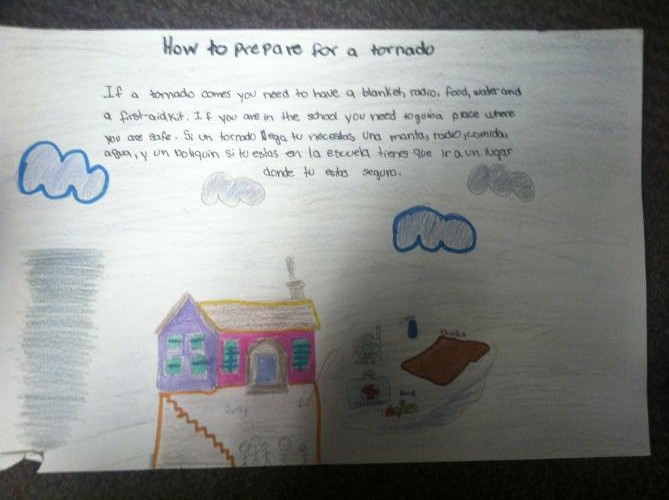 How to prepare for a tornado
If a tornado comes you need to have a blanket, radio, food, water and
a first-aid kit. If you are in the school you need to go in a place where
you are safe. Si un tornado llega tu necesitas una manta, radio, comida,
agua, y un botiquin si tu estas en la escuela tienes que ir a un lugar
donde tu estas seguro.